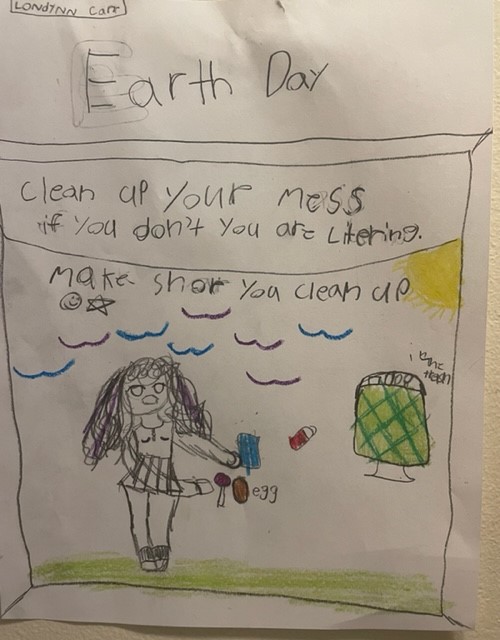 LONDYNN Carr
Earth Day
Clean up your mess
if you don't you are Litering.
Make shor you clean up
egg